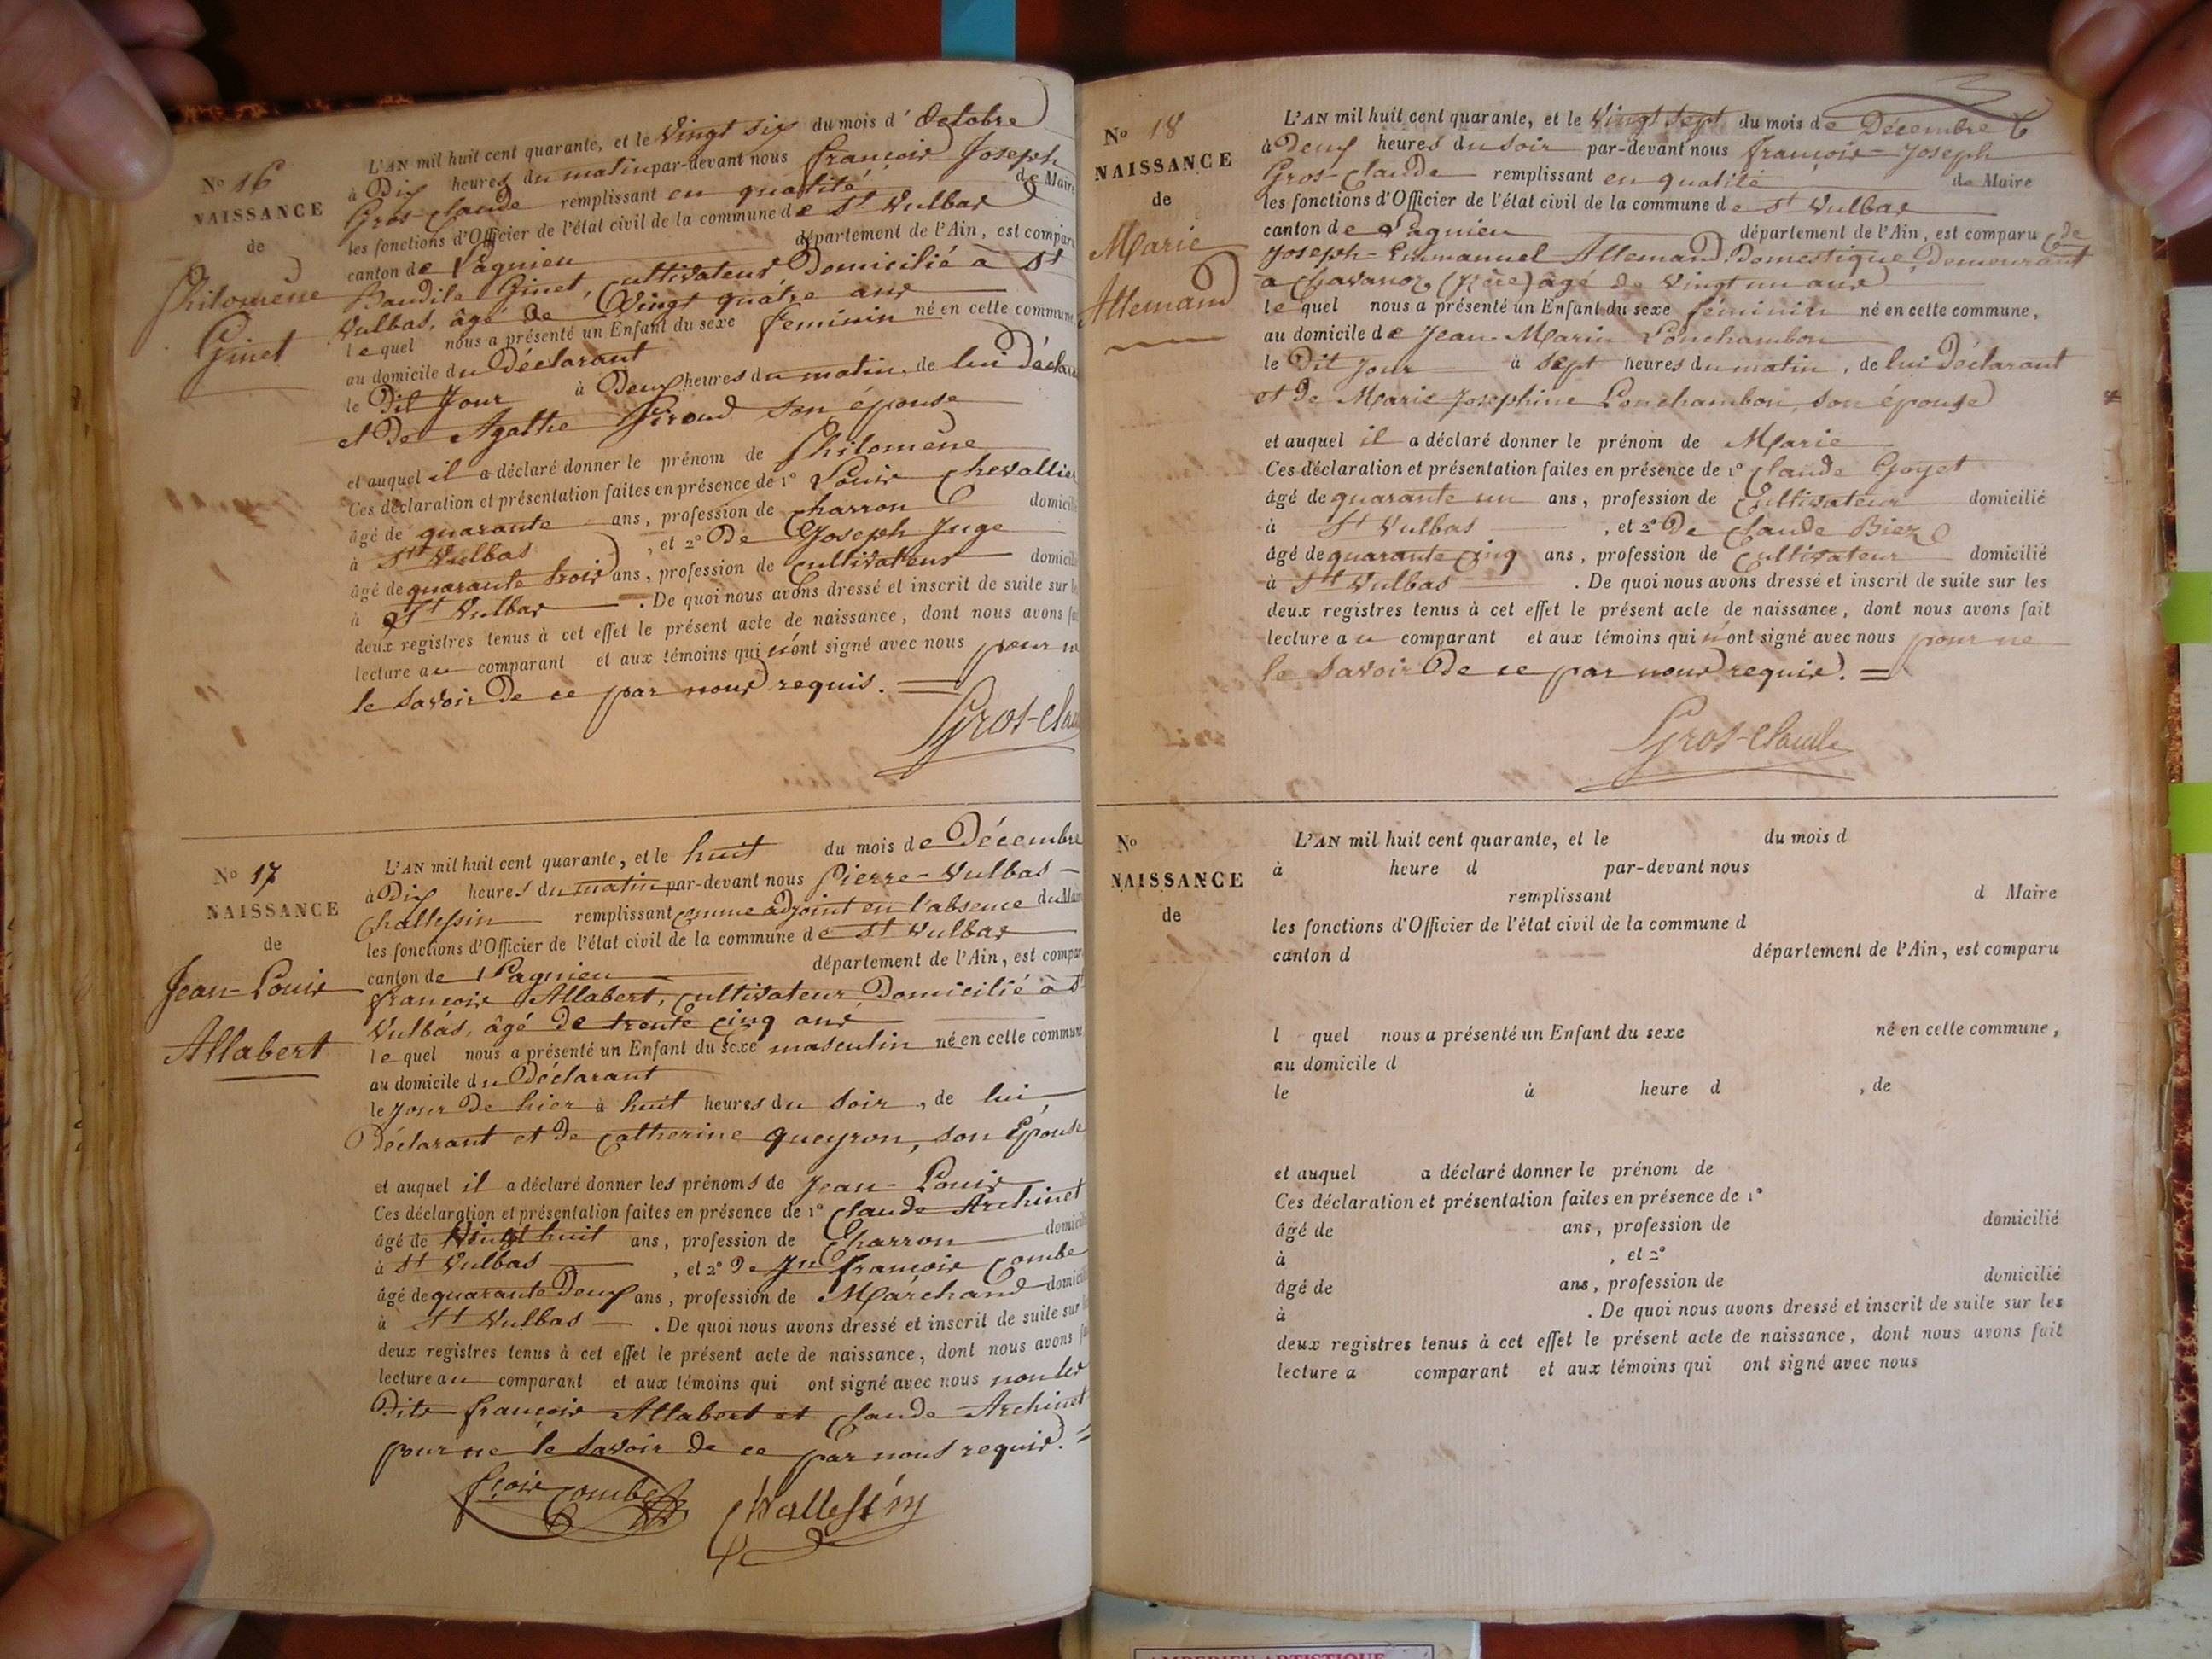 No 16
NAISSANCE
de
Philomène
Ginet
L'AN mil huit cent quarante, et le Vingt six du mois d'Octobre
à Dix heures du matin par-devant nous françois Joseph
Gros-Claude remplissant en qualité de Maire
les fonctions d'Officier de l'état civil de la commune de St Vulbas
canton de Lagnieu département de l'Ain, est comparu
Baudile Ginet, cultivateur Domicilié à St
Vulbas, âgé de Vingt quatre ans
lequel nous a présenté un Enfant du sexe féminin né en cette commune
au domicile du Déclarant
le Dit Jour à Deux heures du matin, de lui Déclara
et De Agathe Giroud son épouse
et auquel il a déclaré donner le prénom de Philomène
Ces déclaration et présentation faites en présence de 1° Louis Chevallier
âgé de quarante ans, profession de charron domicilié
à St Vulbas, et 2° De Joseph Juge
âgé de quarante trois ans, profession de cultivateur domicilié
à St Vulbas. De quoi nous avons dressé et inscrit de suite sur les
deux registres tenus à cet effet le présent acte de naissance, dont nous avons fai
lecture au comparant et aux témoins qui n'ont signé avec nous pour n
le savoir De ce par nous requis. =
Gros-Clau
No 17
NAISSANCE
de
Jean-Louis
Allabert
L'AN mil huit cent quarante, et le huit du mois de Décembre
à Dix heures du matin par-devant nous Pierre-Vulbas
Challessin remplissant comme adjoint en l'absence du Maire
les fonctions d'Officier de l'état civil de la commune de St Vulbas
canton de Lagnieu département de l'Ain, est compar
françois Allabert, cultivateur Domicilié à St
Vulbas, âgé De trente cinq ans
lequel nous a présenté un Enfant du sexe masculin né en cette commune
au domicile du Déclarant
le jour De hier à huit heures du soir, de lui
Déclarant et De Catherine queyron, son Epouse
et auquel il a déclaré donner les prénoms de Jean-Louis
Ces déclaration et présentation faites en présence de 1° Claude Archinet
âgé de Vingt huit ans, profession de Charron domicilié
à St Vulbas, et 2° De Jn françois Combe
âgé de quarante Deux ans, profession de Marchand domicilié
à St Vulbas. De quoi nous avons dressé et inscrit de suite sur les
deux registres tenus à cet effet le présent acte de naissance, dont nous avons fa
lecture au comparant et aux témoins qui ont signé avec nous non les
Dits françois Allabert et Claude Archinet
pour ne le savoir de ce par nous requis. =
fçois Combe Challessin
No 18
NAISSANCE
de
Marie
Allemand
L'AN mil huit cent quarante, et le Vingt sept du mois de Décembre
à Deux heures du soir par-devant nous françois-Joseph
Gros-Claude remplissant en qualité de Maire
les fonctions d'Officier de l'état civil de la commune de St Vulbas
canton de Lagnieu département de l'Ain, est comparu
Joseph-Emmanuel Allemand Domestique, Demeurant
à Chavanoz (Isère) âgé de Vingt un ans
lequel nous a présenté un Enfant du sexe féminin né en cette commune,
au domicile de Jean-Marie Lonchambon
le Dit jour à sept heures du matin, de lui Déclarant
et De Marie-Josephine Lonchambon, son épouse
et auquel il a déclaré donner le prénom de Marie
Ces déclaration et présentation faites en présence de 1° Claude Goyet
âgé de quarante un ans, profession de Cultivateur domicilié
à St Vulbas, et 2° De Claude Biez
âgé de quarante cinq ans, profession de cultivateur domicilié
à St Vulbas. De quoi nous avons dressé et inscrit de suite sur les
deux registres tenus à cet effet le présent acte de naissance, dont nous avons fait
lecture au comparant et aux témoins qui n'ont signé avec nous pour ne
le savoir De ce par nous requis. =
Gros-Claude
No
NAISSANCE
de
L'AN mil huit cent quarante, et le du mois d
à heure d par-devant nous
remplissant d Maire
les fonctions d'Officier de l'état civil de la commune d
canton d département de l'Ain, est comparu
l quel nous a présenté un Enfant du sexe né en cette commune,
au domicile d
le à heure d , de
et auquel a déclaré donner le prénom de
Ces déclaration et présentation faites en présence de 1°
âgé de ans, profession de domicilié
à , et 2°
âgé de ans, profession de domicilié
à . De quoi nous avons dressé et inscrit de suite sur les
deux registres tenus à cet effet le présent acte de naissance, dont nous avons fait
lecture a comparant et aux témoins qui ont signé avec nous